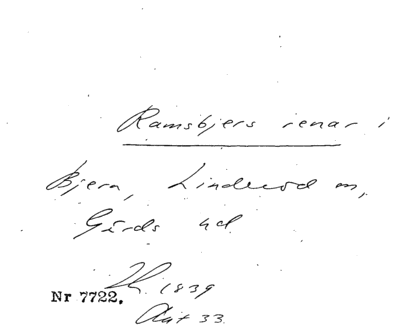 Ramsbjers renar i
Bjern, Linderöd sn,
Gärds hd
1839
Nr 7722.
33